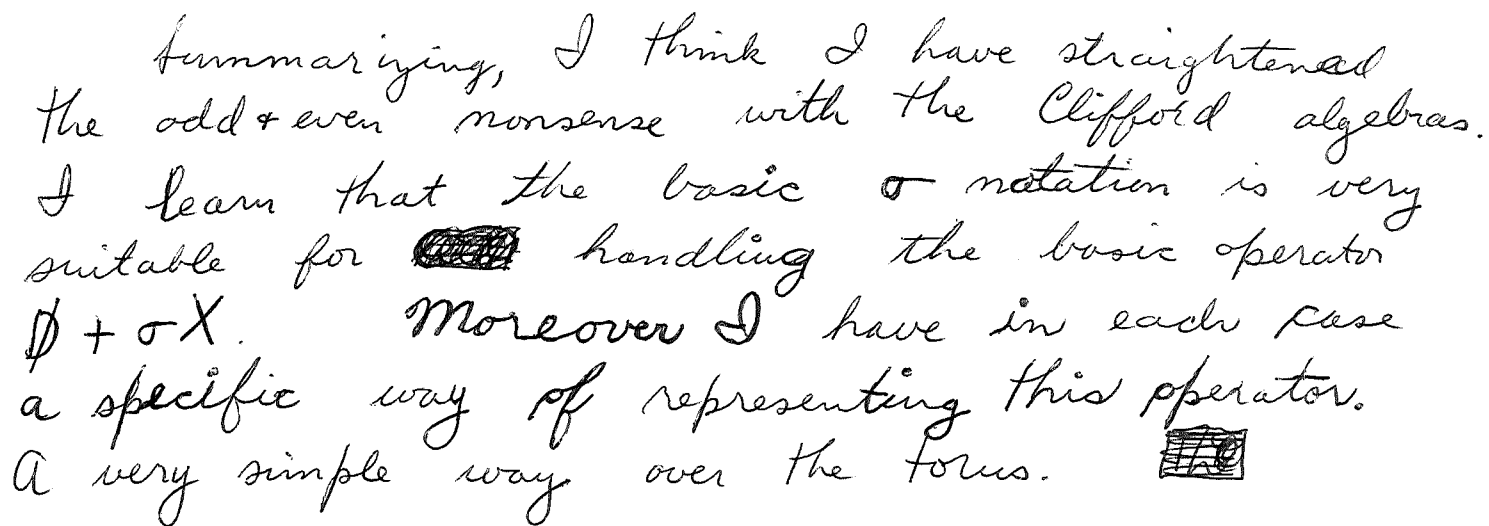 Summarizing, I think I have straightened
the odd & even nonsense with the Clifford algebras.
I learn that the basic σ notation is very
suitable for handling the basic operator
D̸ + σX. Moreover I have in each case
a specific way of representing this operator.
A very simple way over the torus.